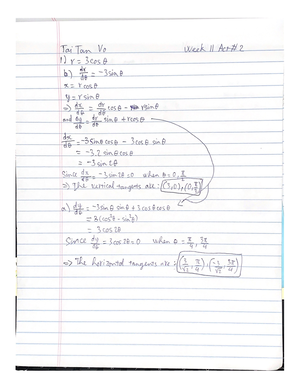 Tai Tan Vo Week 11 Act #2
1) r = 3cosθ
b) dr/dθ = -3sinθ
x = r cosθ
y = r sinθ
=> dx/dθ = dr/dθ cosθ - r sinθ
and dy/dθ = dr/dθ sinθ + r cosθ
dx/dθ = -3sinθ cosθ - 3cosθ sinθ
= -3.2 sinθ cosθ
= -3 sin 2θ
Since dx/dθ = -3 sin 2θ = 0 when θ = 0, π/2
=> The vertical tangents are: (3,0), (0, π/2)
a) dy/dθ = -3sinθ sinθ + 3cosθ cosθ
= 3(cos²θ - sin²θ)
= 3 cos 2θ
Since dy/dθ = 3 cos 2θ = 0 when θ = π/4, 3π/4
=> The horizontal tangents are: (3/√2, π/4), (-3/√2, 3π/4)